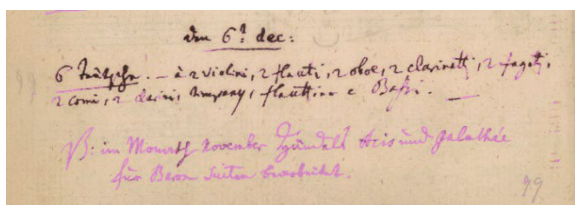 den 6t dec:
6 Teütsche. — à 2 violini, 2 flauti, 2 oboe, 2 clarinetti, 2 fagoti,
2 corni, 2 clarini, timpany, flauttino e Basso. —
NB: im Monath November Händels Acis und galathée
für Baron Suiten bearbeitet.
99